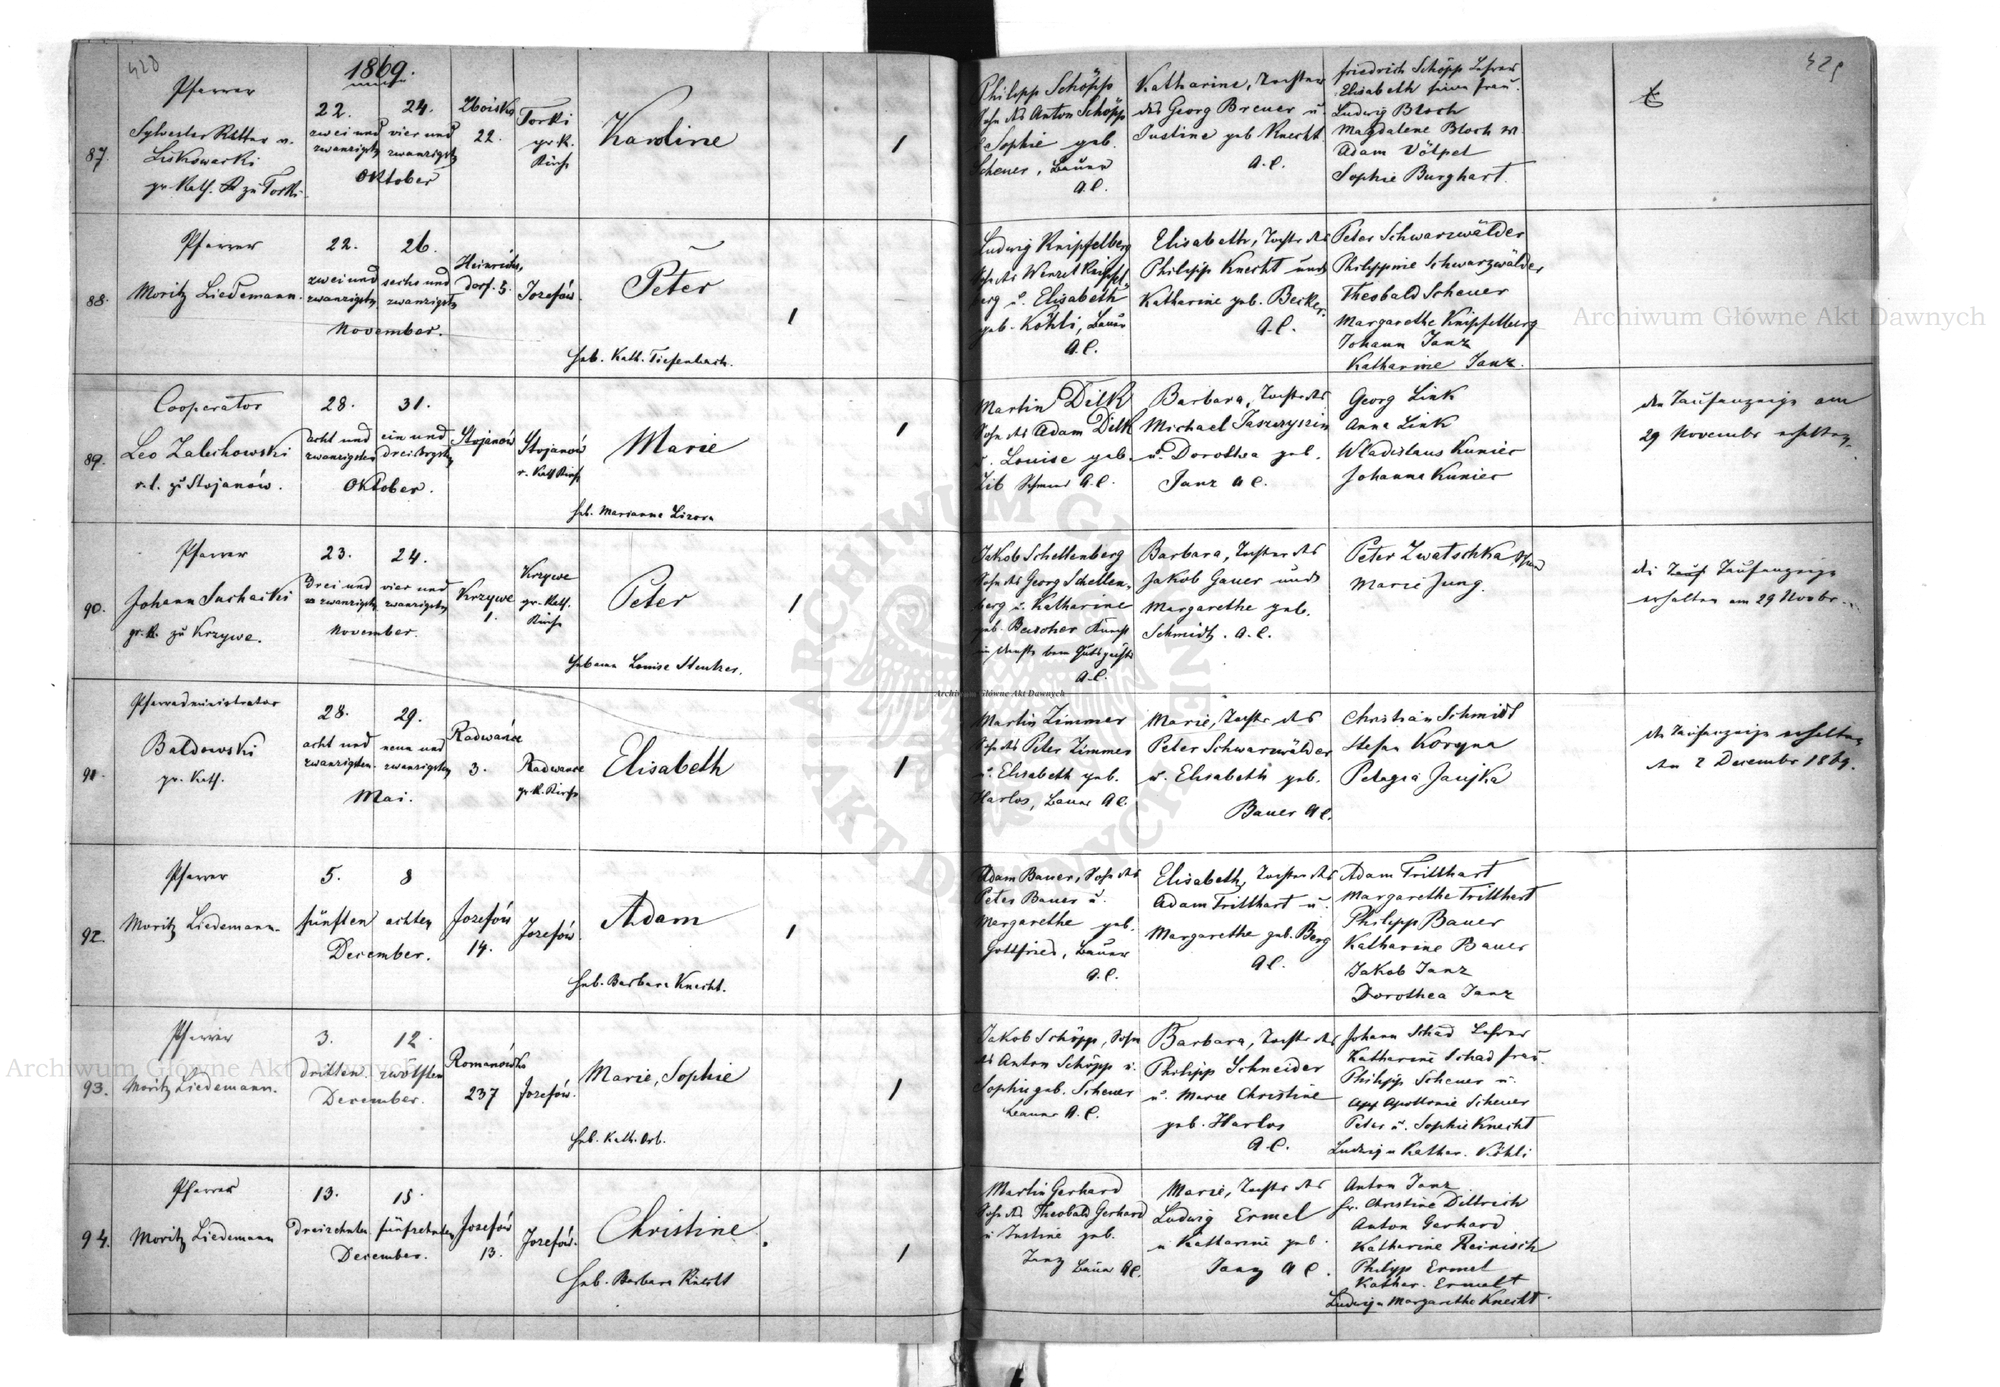 420
1869.
429
87.
Pfarrer
Sylvester Ritter v.
gr. Kath. zu Torki
22. 24.
zwei und vier und
zwanzigsten zwanzigsten
Oktober
Zboiska
22.
Torki
gr. K.
Kirche
Karoline
1
Philipp Schöpp
Sohn des Anton Schöpp
u. Sophie geb.
Scheuer, Bauer
A.C.
Katharine, Tochter
des Georg Breuer u.
Justine geb. Knecht
A.C.
Friedrich Schöpp Lehrer
Elisabeth seine Frau.
Ludwig Bloch
Magdalene Bloch
Adam Völpel
Sophie Burghart.
88.
Pfarrer
Moritz Liedemann.
22. 26.
zwei und sechs und
zwanzigsten zwanzigsten
November.
Heinrichs-
dorf. 5.
Josefów.
Peter
Heb. Kath. Tiefenbach.
1
Ludwig Knipfelberg
Sohn des Wenzel Knipfel-
berg u. Elisabeth
geb. Köhli, Bauer
A.C.
Elisabeth, Tochter des
Philipp Knecht und
Katharine geb. Becker.
A.C.
Peter Schwarzwälder
Philippine Schwarzwälder
Theobald Scheuer
Margarethe Knipfelberg
Johann Janz
Katharine Janz.
89.
Cooperator
Leo Zalechowski
r. l. zu Stojanów.
28. 31.
acht und ein und
zwanzigsten dreißigsten
Oktober.
Stojanów
Stojanów
r. Kath. Kirche
Marie
Heb. Marianna Lizora
1
Martin Dilk
Sohn des Adam Dilk
u. Louise geb.
Zib A.C.
Barbara, Tochter des
Michael Jaszczyszin
u. Dorothea geb.
Janz A.C.
Georg Link
Anna Link
Wladislaus Kunier
Johanna Kunier
die Taufanzeige am
29 November erhalten.
90.
Pfarrer
Johann Suchacki
gr. K. zu Krzywe.
23. 24.
drei und vier und
zwanzigsten zwanzigsten
November.
Krzywe
1.
Krzywe
gr. Kath.
Kirche
Peter
Hebamme Louise Stentzer.
1
Jakob Schellenberg
Sohn des Georg Schellen-
berg u. Katharine
A.C.
Barbara, Tochter des
Jakob Gauer und
Margarethe geb.
Schmidt. A.C.
Peter Zwatschka
Marie Jung.
die Tauf Taufanzeige
erhalten am 29 Novbr.
91.
Pfarradministrator
Baldowski
gr. Kath.
28. 29.
acht und neun und
zwanzigsten. zwanzigsten
Mai.
Radwańce
3.
Radwance
gr. K. Kirche
Elisabeth
1
Martin Zimmer
Sohn des Peter Zimmer
u. Elisabeth geb.
Harlos, Bauer A.C.
Marie, Tochter des
Peter Schwarzwälder
u. Elisabeth geb.
Bauer A.C.
Christian Schmidt
Stefan Koryna
Pelagia Janjka
die Taufanzeige erhalten
den 2 December 1869.
92.
Pfarrer
Moritz Liedemann.
5. 8
fünften achten
December.
Josefów
14.
Josefów.
Adam
Heb. Barbara Knecht.
1
Adam Bauer, Sohn des
Peter Bauer u.
Margarethe geb.
Gottfried, Bauer
A.C.
Elisabeth, Tochter des
Adam Tritthart u.
Margarethe geb. Berg
A.C.
Adam Tritthart
Margarethe Tritthart
Philipp Bauer
Katharine Bauer
Jakob Janz
Dorothea Janz
93.
Pfarrer
Moritz Liedemann.
3. 12.
dritten zwölften
December.
Romanówka
237
Josefów.
Marie, Sophie
Heb. Kath. Orb.
1
Jakob Schöpp, Sohn
des Anton Schöpp u.
Sophie geb. Scheuer
Bauer A.C.
Barbara, Tochter des
Philipp Schneider
u. Marie Christine
geb. Harlos
A.C.
Johann Schad Lehrer
Katharine Schad Frau.
Philipp Scheuer u.
App Apollonie Scheuer
Peter u. Sophie Knecht
Ludwig u Kathar. Köhli
94.
Pfarrer
Moritz Liedemann
13. 15.
dreizehnten fünfzehnten
December.
Josefów
13.
Josefów.
Christine
Heb. Barbara Knecht
1
Martin Gerhard
Sohn des Theobald Gerhard
u Justine geb.
Janz Bauer A.C.
Marie, Tochter des
Ludwig Ermel
u Katharine geb.
Janz A C.
Anton Janz
Christine Dittrich
Anton Gerhard
Katharine Reinisch
Philipp Ermel
Kathar. Ermelt
Ludwig u Margarethe Knecht.
Archiwum Główne Akt Dawnych
Archiwum Główne Akt Dawnych
Archiwum Główne Akt Dawnych
ARCHIWUM GŁÓWNE AKT DAWNYCH